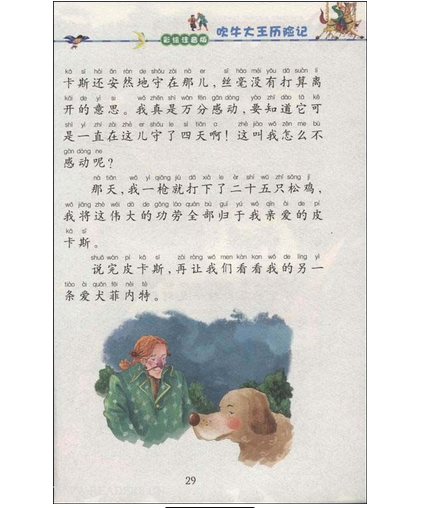 彩绘注音版 吹牛大王历险记
kǎ sī hái ān rán de shǒu zài nà er sī háo méi yǒu dǎ suàn lí
卡斯还安然地守在那儿，丝毫没有打算离
kāi de yì si wǒ zhēn shì wàn fēn gǎn dòng yào zhī dào tā kě
开的意思。我真是万分感动，要知道它可
shì yì zhí zài zhè er shǒu le sì tiān a zhè jiào wǒ zěn me bù
是一直在这儿守了四天啊！这叫我怎么不
gǎn dòng ne
感动呢？
nà tiān wǒ yì qiāng jiù dǎ xià le èr shí wǔ zhī sōng jī
那天，我一枪就打下了二十五只松鸡，
wǒ jiāng zhè wěi dà de gōng láo quán bù guī yú wǒ qīn ài de pí
我将这伟大的功劳全部归于我亲爱的皮
kǎ sī
卡斯。
shuō wán pí kǎ sī zài ràng wǒ men kàn kan wǒ de lìng yì
说完皮卡斯，再让我们看看我的另一
tiáo ài quǎn fēi nèi tè
条爱犬菲内特。
29